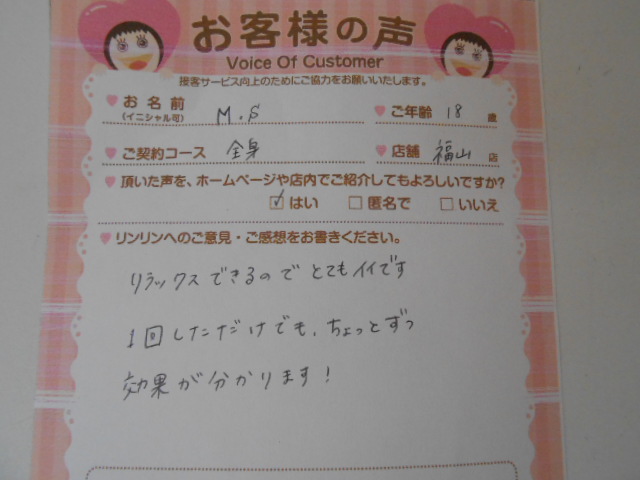 お客様の声
Voice Of Customer
接客サービス向上のためにご協力をお願いいたします。
お名前 M.S ご年齢 18 歳
(イニシャル可)
ご契約コース 全身 店舗 福山 店
頂いた声を、ホームページや店内でご紹介してもよろしいですか?
☑ はい □ 匿名で □ いいえ
リンリンへのご意見・ご感想をお書きください。
リラックスできるので とてもイイです
1回しただけでも、ちょっとずつ
効果が分かります!